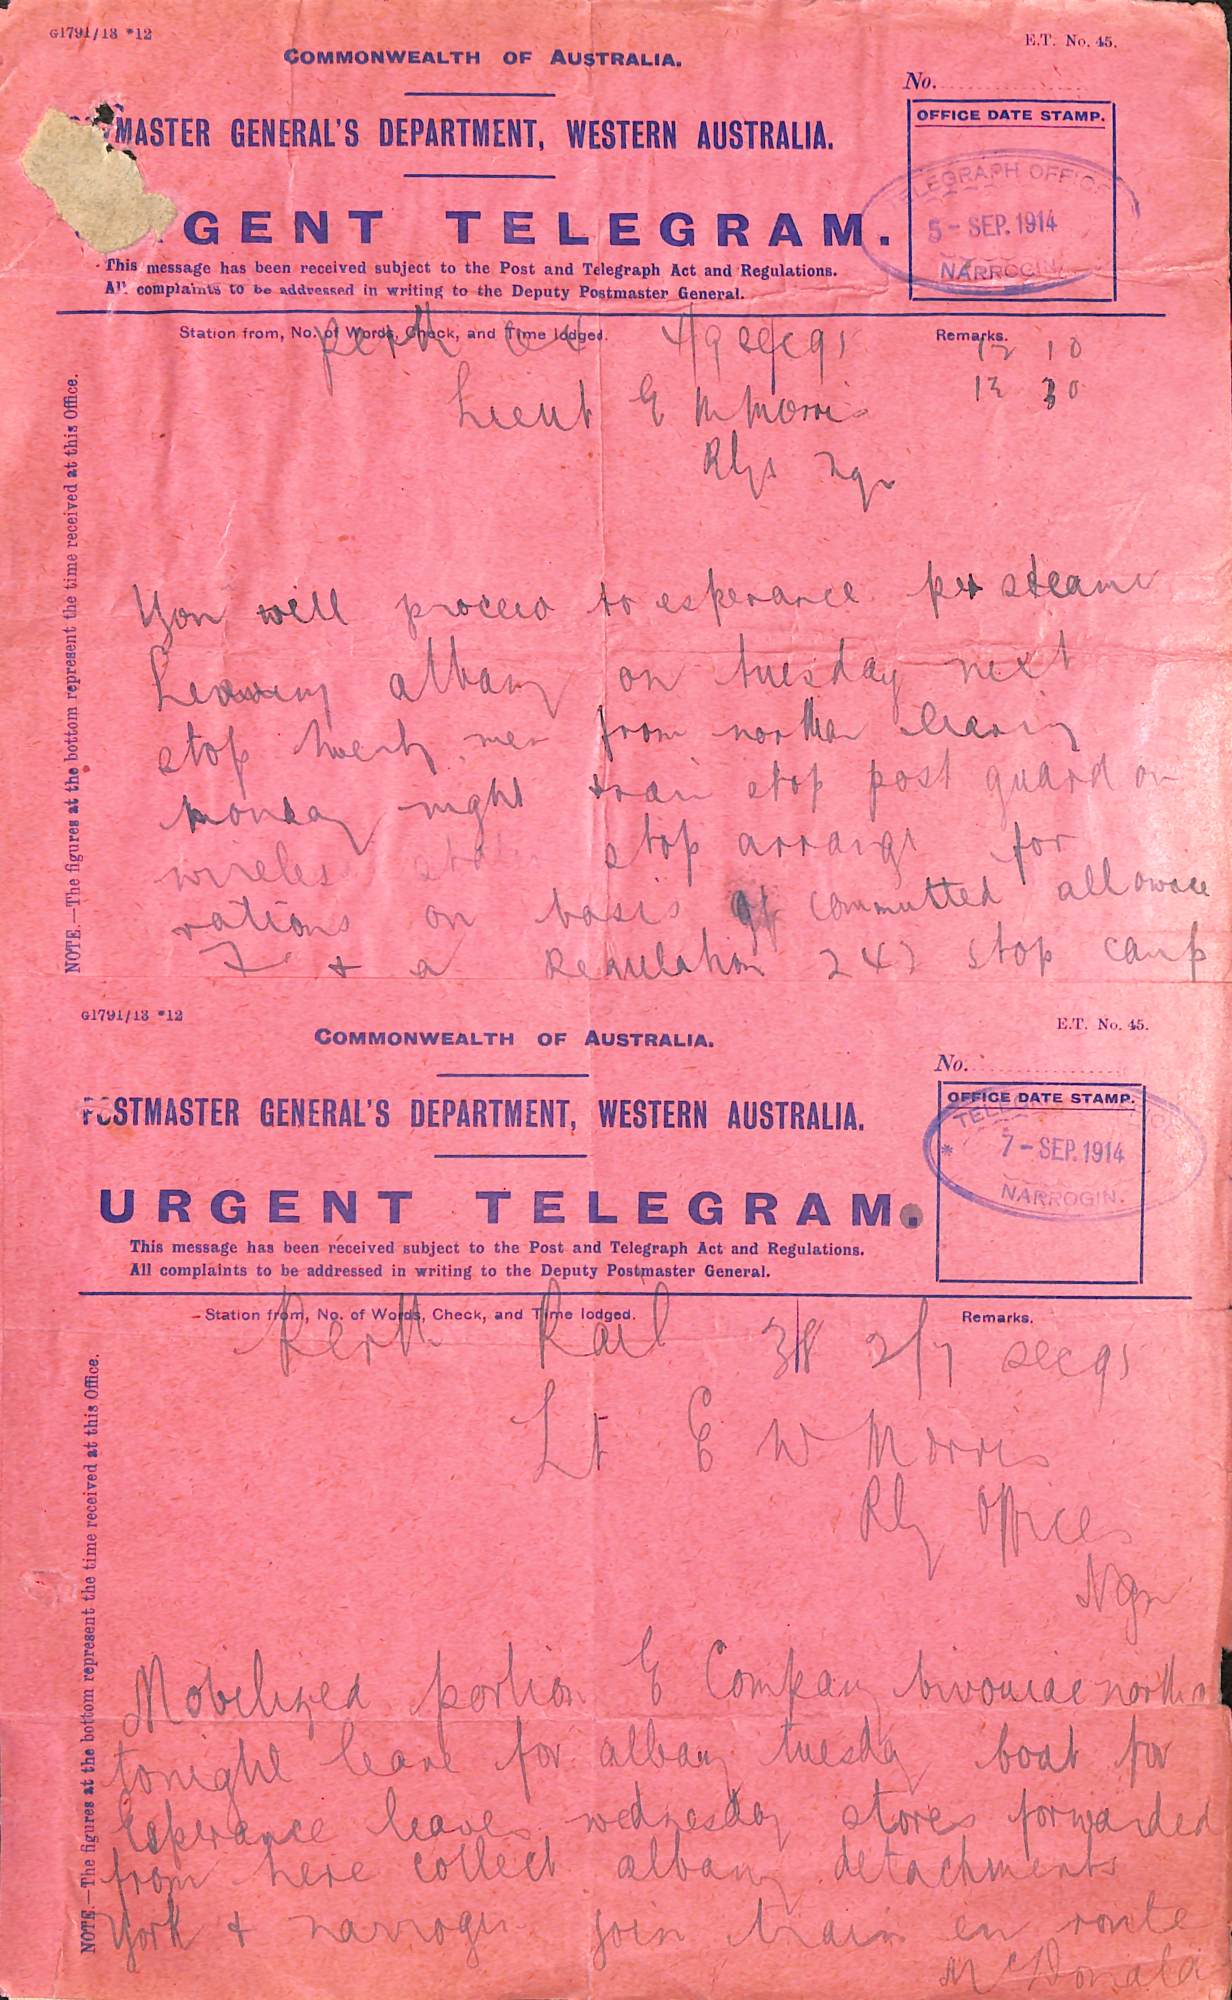 G1791/13 *12
E.T. No. 45.
COMMONWEALTH OF AUSTRALIA.
No.
OFFICE DATE STAMP.
MASTER GENERAL'S DEPARTMENT, WESTERN AUSTRALIA.
TELEGRAPH OFFICE
5 - SEP. 1914
NARROGIN.
GENT TELEGRAM.
This message has been received subject to the Post and Telegraph Act and Regulations.
All complaints to be addressed in writing to the Deputy Postmaster General.
Station from, No. of Words, Check, and Time lodged.
Remarks.
Perth 49
12 10
12 30
Lieut E M Morris
Rlys Ngn
NOTE.—The figures at the bottom represent the time received at this Office.
You will proceed to esperance per steamer
Leaving albany on tuesday next
stop twenty men from northam leaving
monday night train stop post guard on
wireless stop arrange for
rations on basis of committed allowance
F & a Regulation 242 stop camp
G1791/13 *12
E.T. No. 45.
COMMONWEALTH OF AUSTRALIA.
No.
OFFICE DATE STAMP.
POSTMASTER GENERAL'S DEPARTMENT, WESTERN AUSTRALIA.
TELEGRAPH OFFICE
* 7 - SEP. 1914
NARROGIN.
URGENT TELEGRAM.
This message has been received subject to the Post and Telegraph Act and Regulations.
All complaints to be addressed in writing to the Deputy Postmaster General.
Station from, No. of Words, Check, and Time lodged.
Remarks.
Perth Rail 38 2/7
Lt E W Morris
Rly Offices
Ngn
NOTE.—The figures at the bottom represent the time received at this Office.
Mobilized portion E Company bivouiac northam
tonight leave for albany tuesday boat for
Esperance leaves wednesday stores forwarded
from here collect albany detachments
York & narrogin join train en route
McDonald